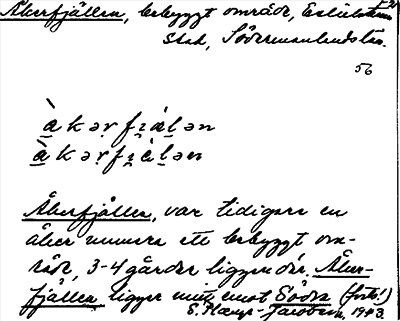 Åkerfjällen, bebyggt område, Eskilstuna
stad, Södermanlands län.
56
å̀ k ə ṛ f ʒ ä l ə n
å̀ k ə ṛ f ʒ ä̀ l ə n
Åkerfjällen, var tidigare en
åker numera ett bebyggt om-
råde, 3-4 gårdar ligger där. Åker-
fjällen ligger mitt emot Södra (forts.!)
1943.